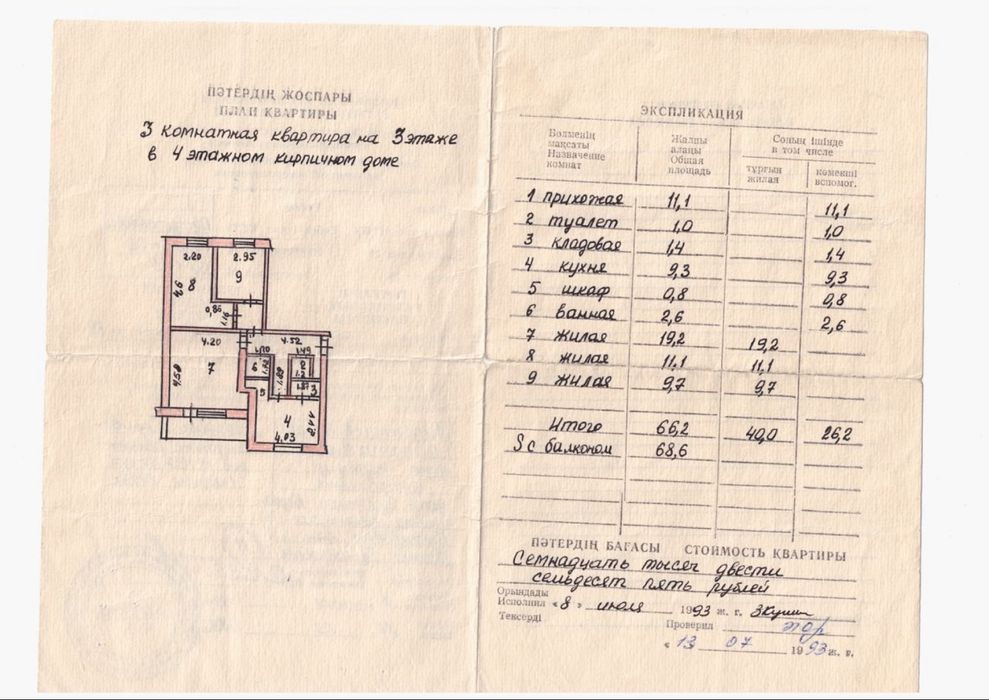 ПӘТЕРДІҢ ЖОСПАРЫ
ПЛАН КВАРТИРЫ
3 комнатная квартира на 3 этаже
в 4 этажном кирпичном доме
2.20 2.95
8 9
4,6
0,86 1,16
4.20 4.52
7 4,58
6 5 3
4
4.03
ЭКСПЛИКАЦИЯ
Бөлменің мақсаты Назначение комнат
Жалпы алаңы Общая площадь
Соның ішінде в том числе
тұрғын жилая
көмекші вспомог.
1 прихожая 11,1 11,1
2 туалет 1,0 1,0
3 кладовая 1,4 1,4
4 кухня 9,3 9,3
5 шкаф 0,8 0,8
6 ванная 2,6 2,6
7 жилая 19,2 19,2
8 жилая 11,1 11,1
9 жилая 9,7 9,7
Итого 66,2 40,0 26,2
S с балконом 68,6
ПӘТЕРДІҢ БАҒАСЫ СТОИМОСТЬ КВАРТИРЫ
Семнадцать тысяч двести
семьдесят пять рублей
Орындады
Исполнил «8» июля 1993 ж. г.
Тексерді
Проверил
«13 07 1993 ж. г.